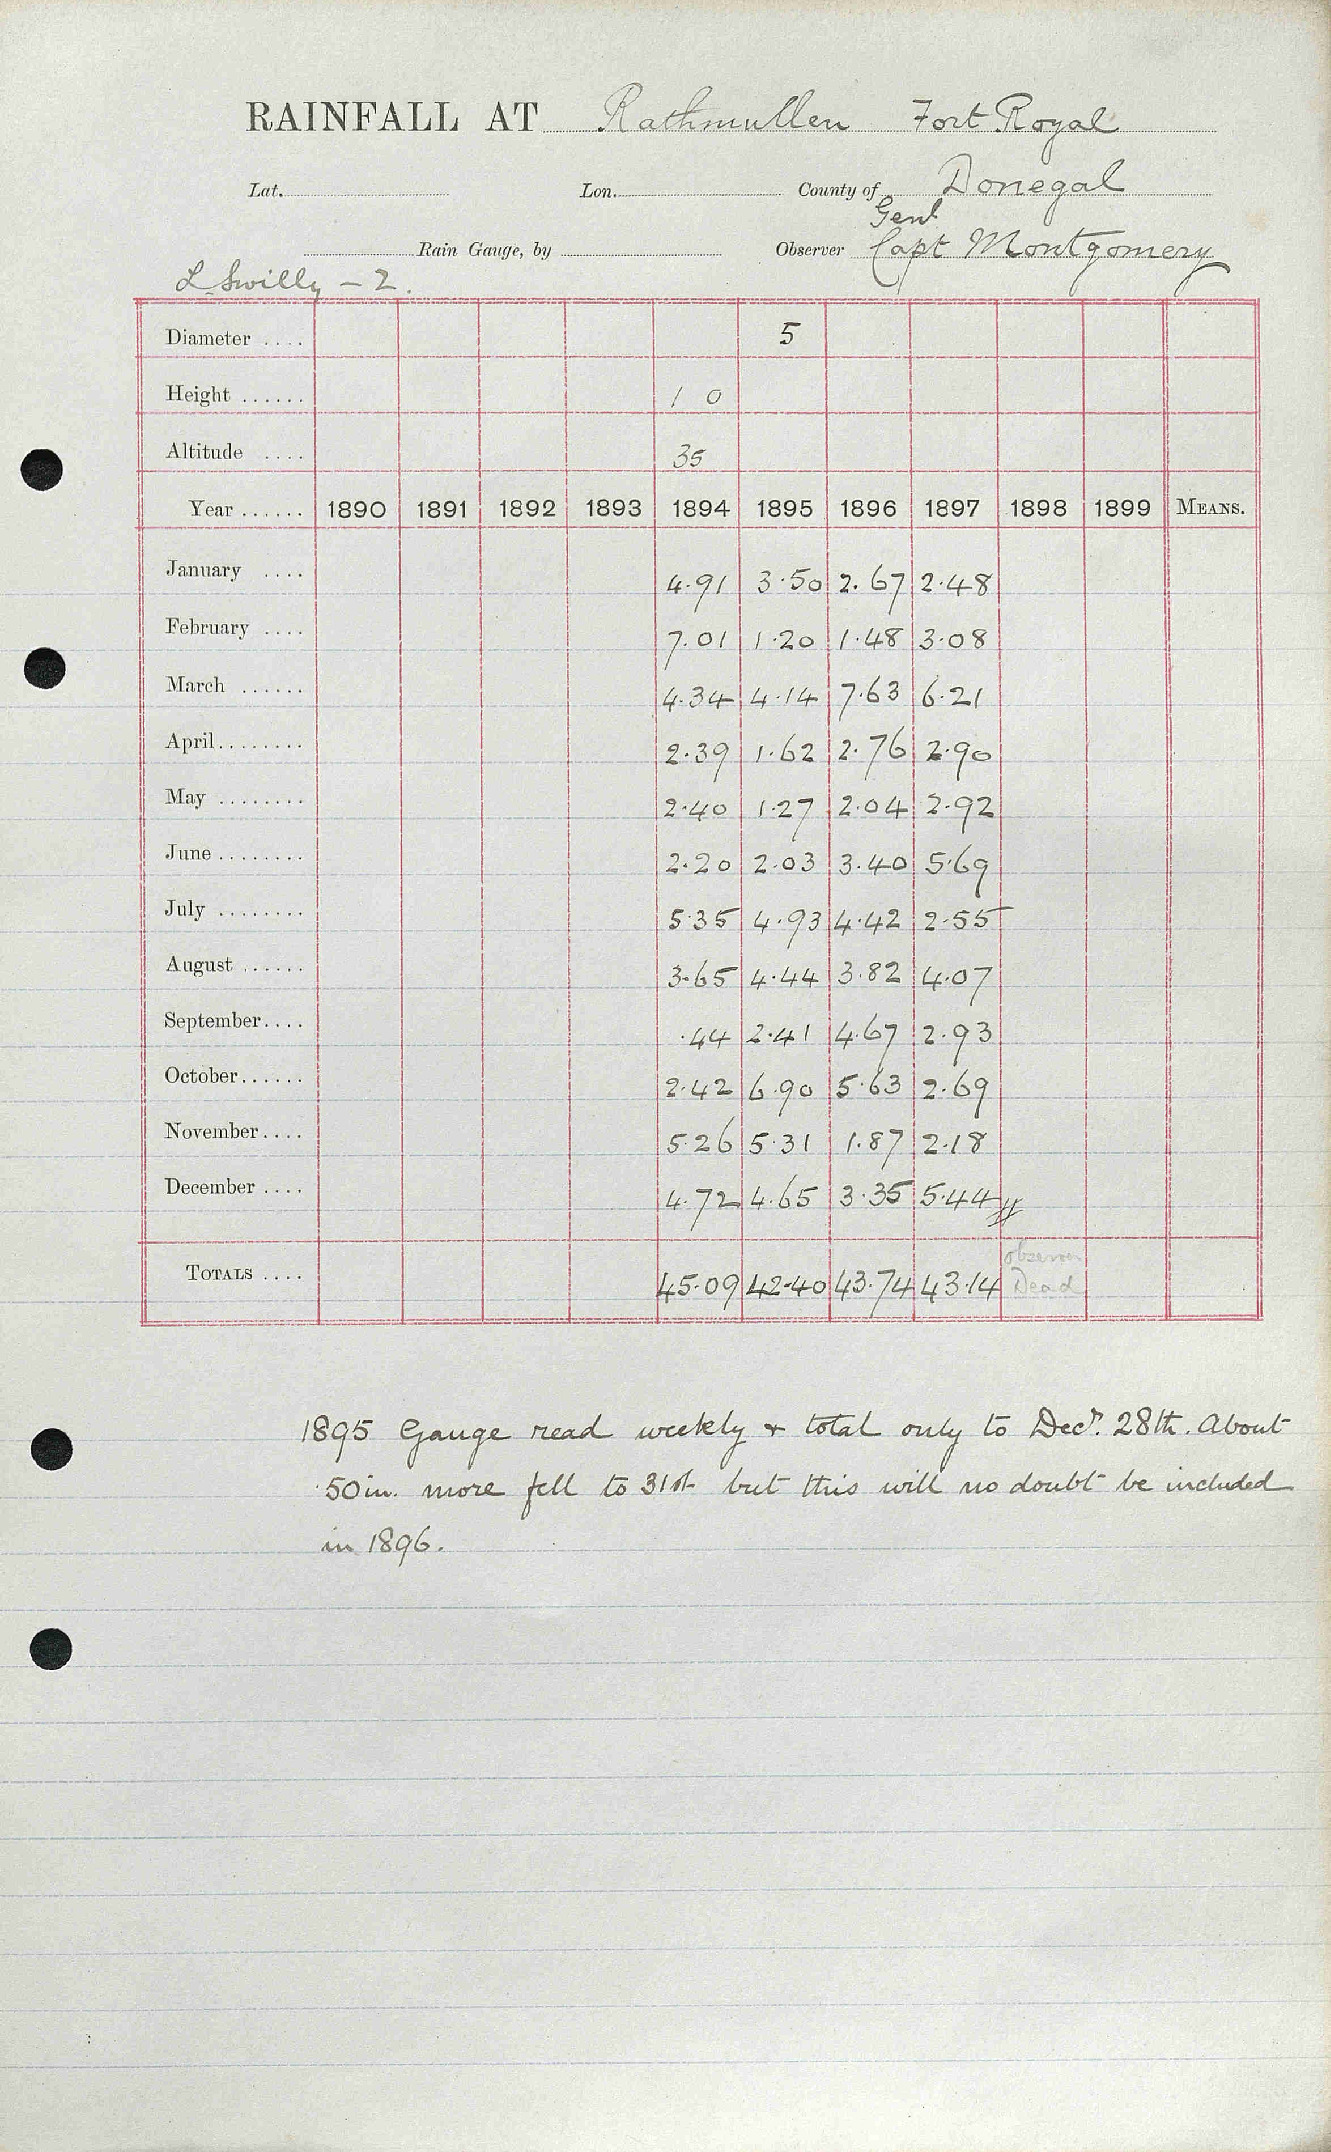 RAINFALL AT Rathmullen Fort Royal
Lat. Lon. County of Donegal
Genl
Rain Gauge, by Observer Capt Montgomery
L. Swilly - 2.
Diameter .... 5
Height ...... 1 0
Altitude .... 35
Year ...... 1890 1891 1892 1893 1894 1895 1896 1897 1898 1899 MEANS.
January .... 4.91 3.50 2.67 2.48
February .... 7.01 1.20 1.48 3.08
March ...... 4.34 4.14 7.63 6.21
April ........ 2.39 1.62 2.76 2.90
May ........ 2.40 1.27 2.04 2.92
June ........ 2.20 2.03 3.40 5.69
July ........ 5.35 4.93 4.42 2.55
August ...... 3.65 4.44 3.82 4.07
September .... .44 2.41 4.67 2.93
October ...... 2.42 6.90 5.63 2.69
November .... 5.26 5.31 1.87 2.18
December .... 4.72 4.65 3.35 5.44
observer
TOTALS .... 45.09 42.40 43.74 43.14 Dead
1895 Gauge read weekly & total only to Decr. 28th. About
.50 in. more fell to 31st but this will no doubt be included
in 1896.